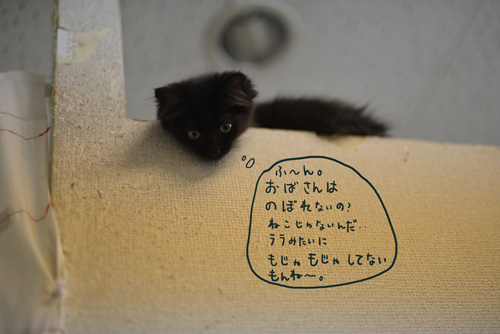 ふ〜ん。
おばさんは
のぼれないの?
ねこじゃないんだ..
ララみたいに
もじゃもじゃしてない
もんね〜。